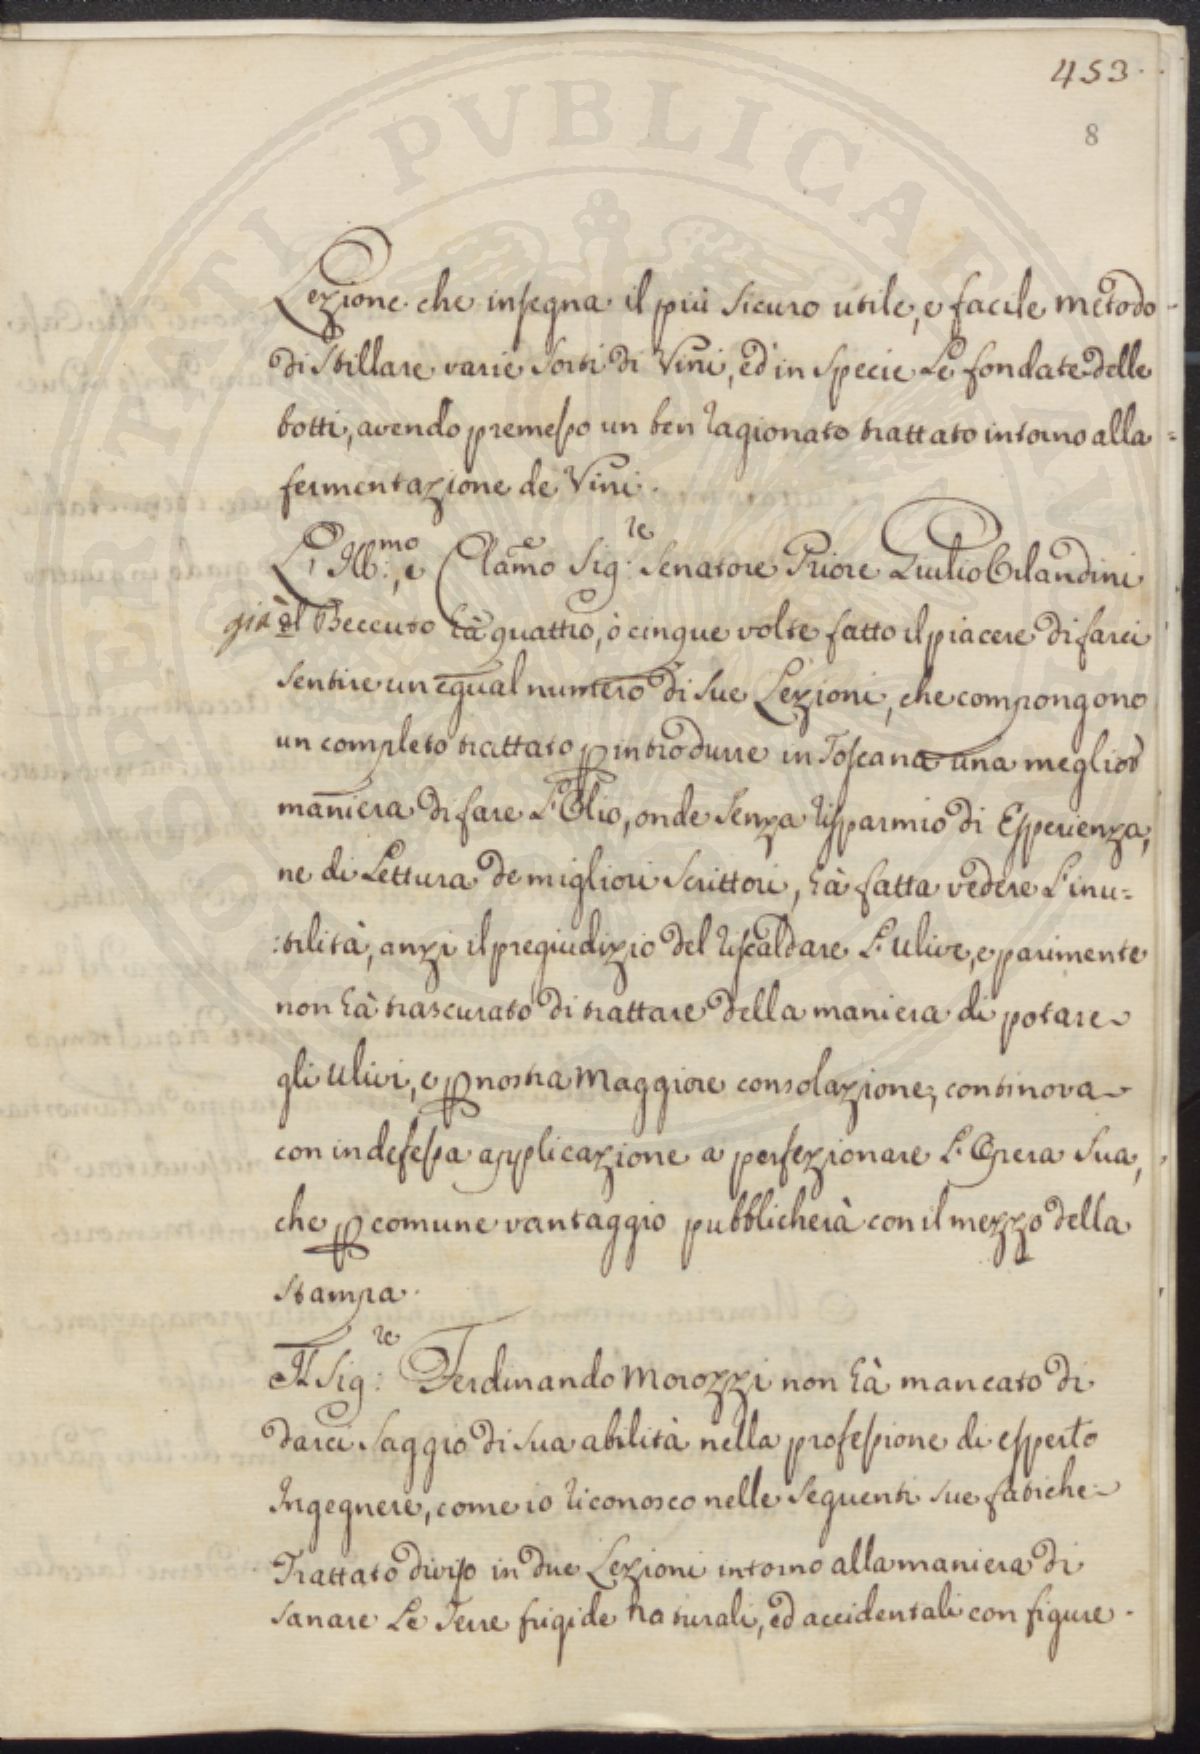 453.
8
Lezione che insegna il più sicuro utile, e facile metodo
di stillare varie sorti di Vini, ed in specie Le fondate delle
botti, avendo premesso un ben ragionato trattato intorno alla
fermentazione de Vini.
L' Ill:mo, e Clamo Sig:re Senatore Priore Giulio Orlandini
già del Beccuto hà quattro, ò cinque volte fatto il piacere di farci
sentire un egual numero di sue Lezioni, che compongono
un completo trattato p introdurre in Toscana una meglior
maniera di fare L'Olio, onde senza risparmio di Esperienza,
ne di Lettura de migliori Scrittori, hà fatta vedere L'inu=
:tilità, anzi il pregiudizio del riscaldare L'ulive, e parimente
non hà trascurato di trattare della maniera di potare
gli ulivi, e p nostra maggiore consolazione, continova
con indefessa applicazione a perfezionare L'Opera sua,
che p comune vantaggio pubblicherà con il mezzo della
stampa.
Il Sig:re Ferdinando Morozzi non hà mancato di
darci saggio di sua abilità nella professione di esperto
Ingegnere, come io riconosco nelle seguenti sue fatiche.
Trattato diviso in due Lezioni intorno alla maniera di
sanare Le Terre frigide naturali, ed accidentali con figure.
PERTI TATI PVBLICAE